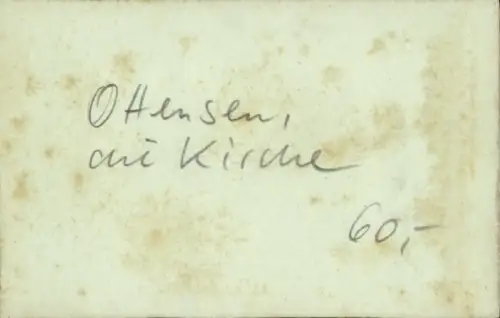 Ottensen,
die Kirche
60,-